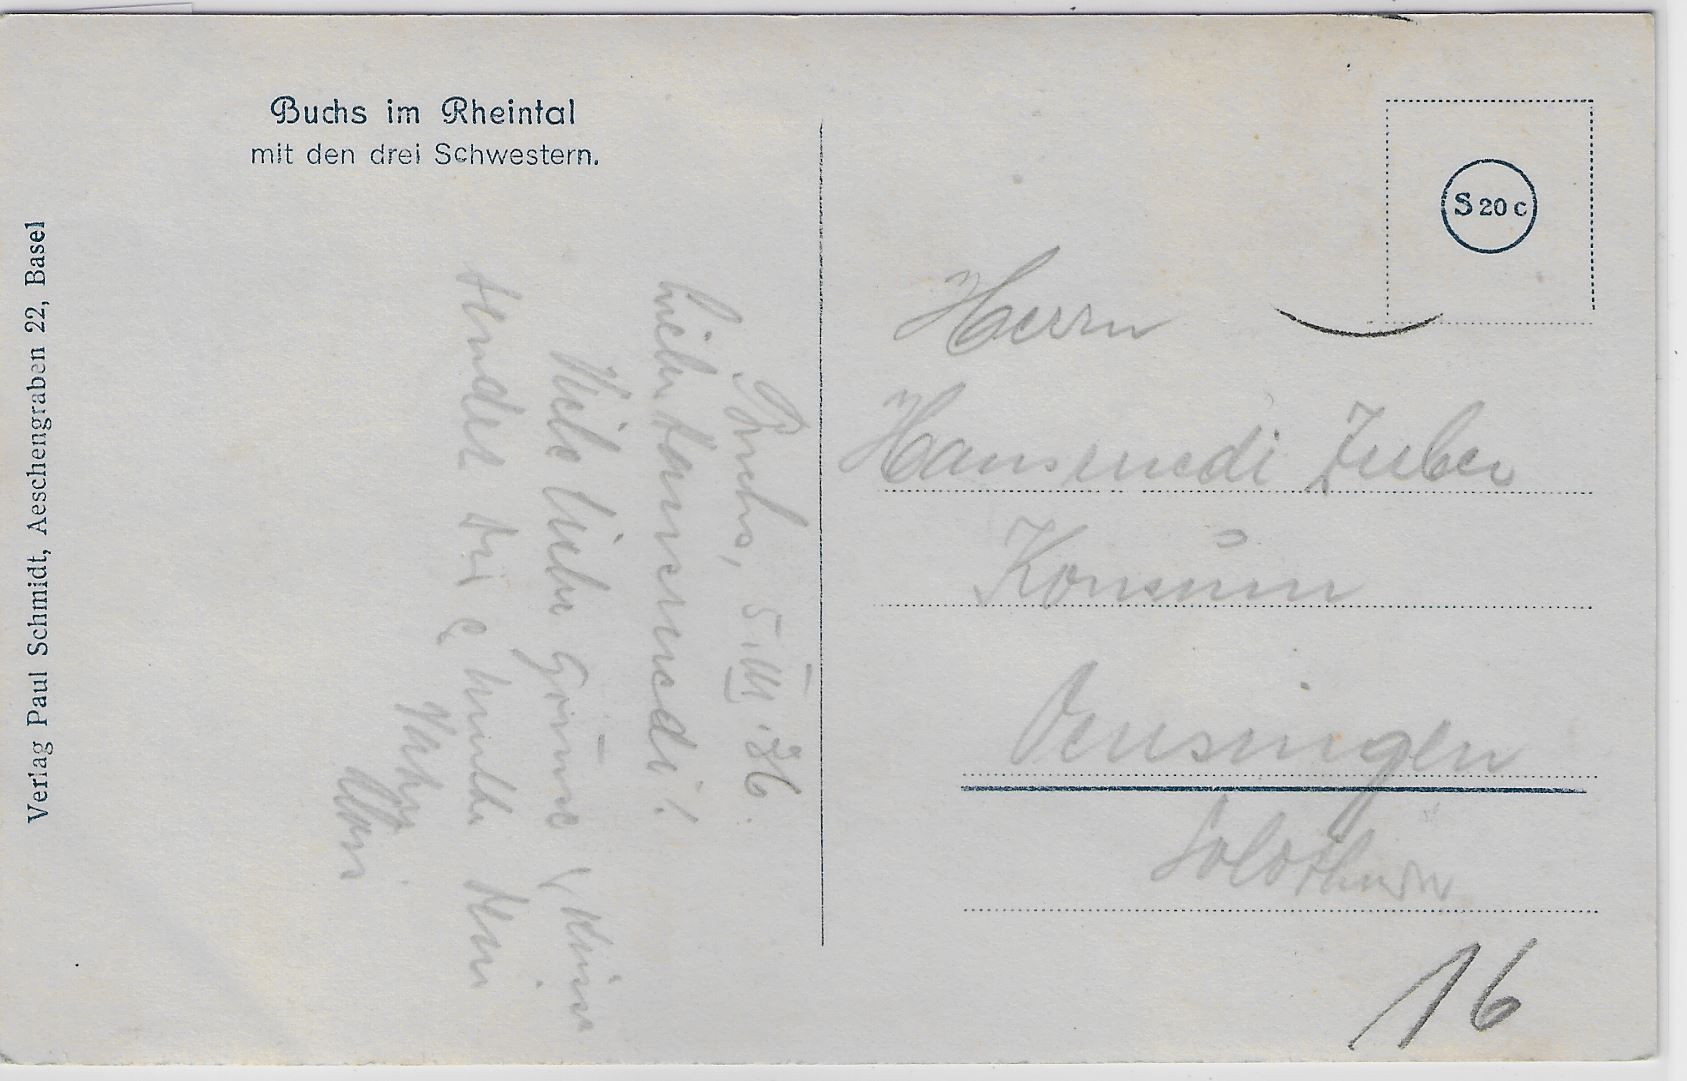 Buchs im Rheintal
mit den drei Schwestern.
Verlag Paul Schmidt, Aeschengraben 22, Basel
S 20 c
Buchs, 5.III.36.
Lieber Hansruedi!
Viele liebe Grüsse
sendet Dir heute Dein
Vater
Herrn
Hansruedi Zuber
Konsum
Oensingen
Solothurn
16